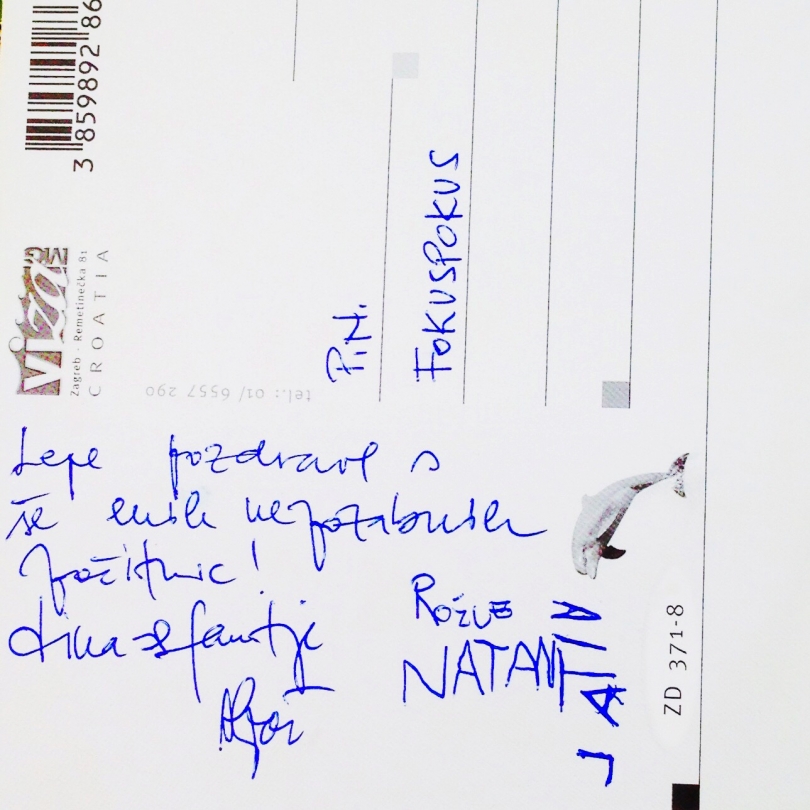 Lepe pozdrave s
še enih nepozabnih
počitnic!
Aljoš
NATAN
JATIV
P.N.
FOKUSPOKUS
viza MG
Zagreb · Remetinečka 81
CROATIA
tel.: 01/ 6557 290
3 859892 86
ZD 371-8